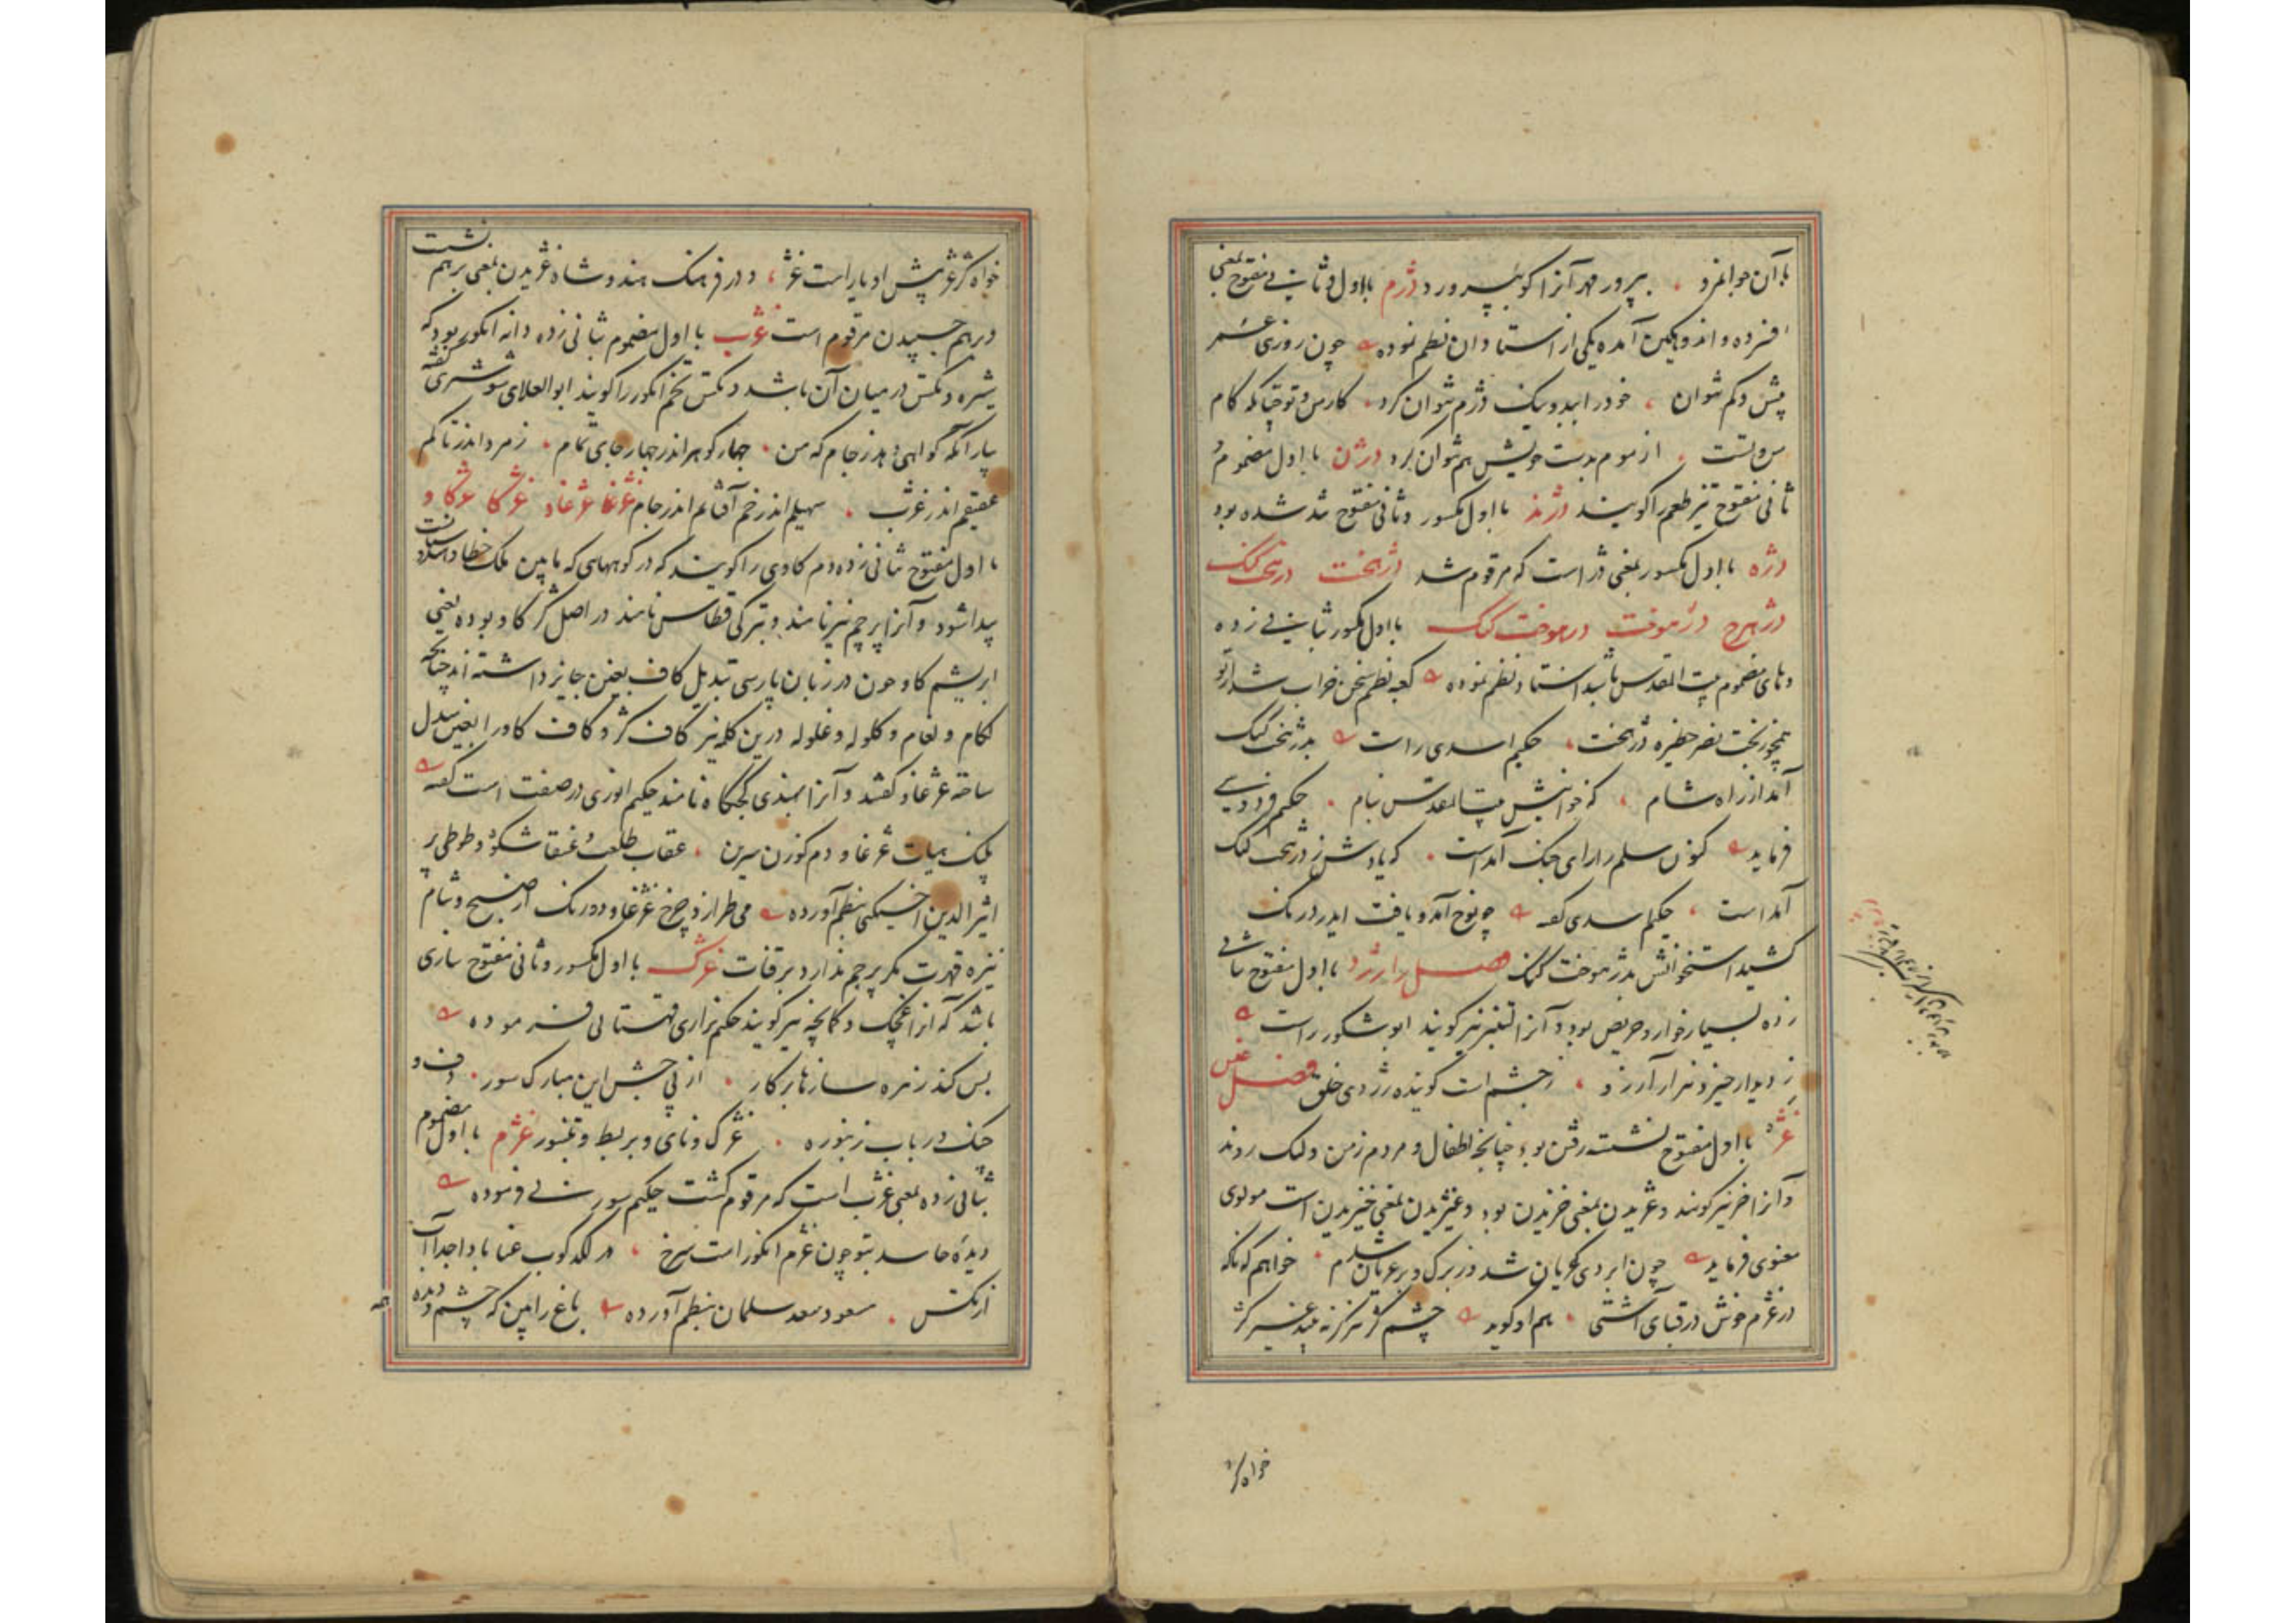 با آن جوانمرد ۰ بپرورد مر آنرا کو بپرورد دژم با اول و ثانی مفتوح بمعنی
افسرده و اندوهگین آمده یکی از استادان نظم نموده چون روزی عمر
بیش و کم نتوان ۰ خود را ببد و نیک دژم نتوان کرد ۰ کار من و تو چنانکه کام
من و تست ۰ از موم بدست خویش هم نتوان کرد دژن با اول مضموم و
ثانی مفتوح تیز طعم را گویند دژند با اول مکسور و ثانی مفتوح تند شده بود
دژه با اول مکسور بمعنی دژ است که مرقوم شد دژهخت دژهخت کنک
دژهرج دژهوخت دژهوخت کنک با اول مکسور بثانی زده
وهای مضموم بیت المقدس باشد استاد نظم نموده کعبه نظم سخن خراب شد از تو
همچو ز بخت نصر حظیره دژهخت ۰ حکیم اسدی راست بدژهخت کنک
آمد از راه شام ۰ که خوانیش بیت المقدس بنام ۰ حکیم فردوسی
فرماید کنون سلم را رای جنک آمدست ۰ که یارش ز دژهخت کنک
آمد است ۰ حکیم اسدی گفته چو نوح آمد و یافت ایدر درنک
کشید استخوانش بدژهوخت کنک فصل را رژد با اول مفتوح بثانی
زده بسیار خوار و حریص بود و آنرا لتنبر نیز گویند ابو شکور راست
ز دیدار خیزد هزار آرزو ۰ ز چشم است گوینده رژدی خلق فصل غین
غژ با اول مفتوح نشسته رفتن بود چنانچه اطفال و مردم زمن و لنک روند
و آنرا خز نیز گویند و غژیدن بمعنی خزیدن بود و غیژیدن بمعنی خیزیدن است مولوی
معنوی فرماید چون ابر دی گریان شد وز برک و بر عریان شدم ۰ خواهم که ناکه
در غژم خوش در قبای آشتی ۰ هم او گوید
خواه کژ
خواه کژ غژ پیش او یا راست غژ ۰ و در فرهنک هندوشاه غژیدن بمعنی بر هم نشست
در هم چسپیدن مرقوم است غژب با اول مضموم بثانی زده دانه انگور بود که
شیره و تکس در میان آن باشد و تکس تخم انگور را گویند ابو العلای شوشتری گفته
بیار آنکه گواهی دهد ز جام که من ۰ چهار گوهرم اندر چهار جای تمام ۰ زمرد اندر تاکم
عقیقم اندر غژب ۰ سهیلم اندر خم آفتابم اندر جام غژغا غژغاو غژکا غژکاو
با اول مفتوح بثانی زده دم گاوی را گویند که در کوههای که مابین ملک خطا و هندوستانست
پیدا شود و آنرا پرچم نیز نامند و بترکی قطاس نامند در اصل کژ گاو بوده یعنی
ابریشم گاو چون در زبان پارسی تبدیل کاف بغین جایز داشته اند چنانچه
لکام و لغام و کلوله و غلوله درین کلمه نیز کاف کژ و کاف گاو را بغین بدل
ساخته غژغاو گفتند و آنرا بهندی کجکاه نامند حکیم انوری در صفت است گفته
پلنک هیات غژغاو دم گوزن سرین ۰ عقاب طلعت عنقا شکوه و طوطی پر
اثیرالدین اخسیکتی بنظم آورده می طرازد چرخ غژغاو دورنک از صبح و شام
نیزه قدرت مکر پرچم ندارد بر قنات غژک با اول مکسور و ثانی مفتوح سازی
باشد که آنرا غچک و کمانچه نیز گویند حکیم نزاری قهستانی فرموده
بس کند زهره سازها بر کار ۰ از پی جشن این مبارک سور ۰ دف و
چنک و رباب زنبوره ۰ غژک و نای و بربط و تنبور غژم با اول مضموم
بثانی زده بمعنی غژب است که مرقوم گشت حکیم سوزنی فرموده
دیده حاسد بتو چون غژم انگور است سرخ ۰ در لکد کوب عنا بادا جدا آب
از تکس ۰ مسعود سعد سلمان بنظم آورده باغ را بین که چشم و دیده